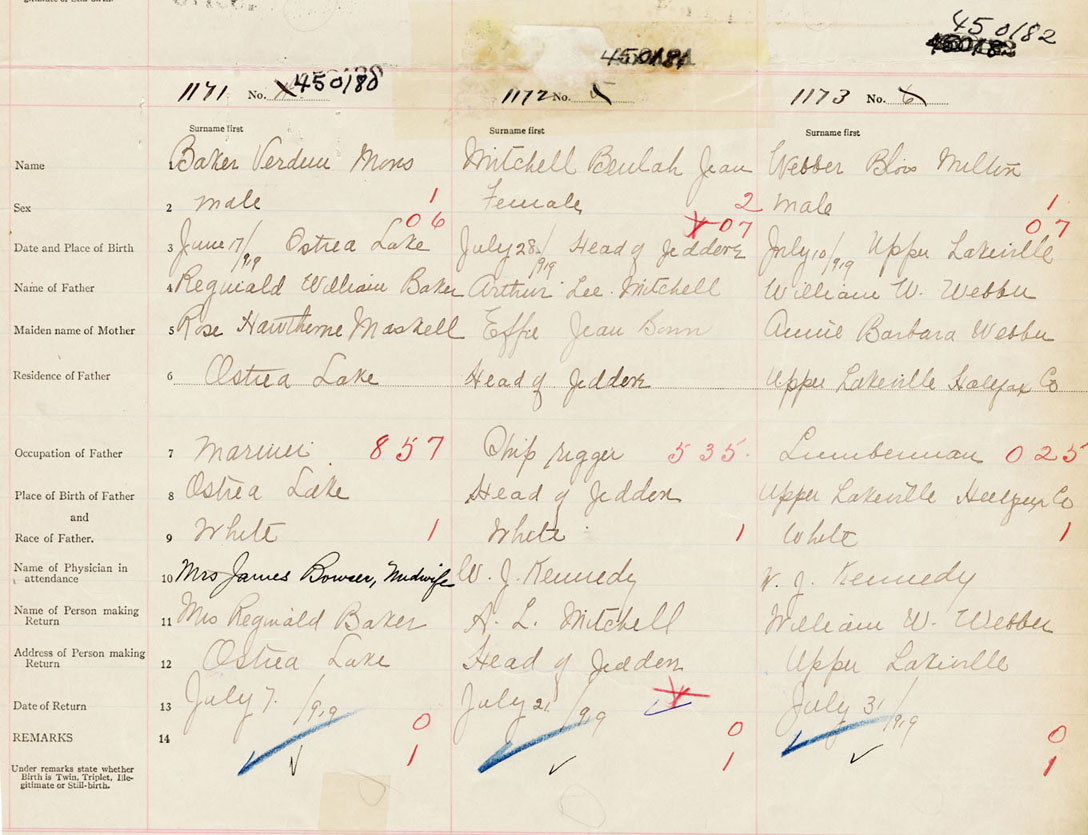 450182
450181
1171 No. 450180
1172 No. 5
1173 No. 6
Surname first Surname first Surname first
Name 1 Baker Verdun Mons Mitchell Beulah Jean Webber Blois Milton
Sex 2 male 1 Female 2 male 1
06 07 07
Date and Place of Birth 3 June 7/919 Ostrea Lake July 28/919 Head of Jeddore July 10/919 Upper Lakeville
Name of Father 4 Reginald William Baker Arthur Lee Mitchell William W. Webber
Maiden name of Mother 5 Rose Hawthorne Maskell Effie Jean Annie Barbara Webber
Residence of Father 6 Ostrea Lake Head of Jeddore Upper Lakeville Halifax Co
Occupation of Father 7 Mariner 857 Ship rigger 535. Lumberman 025
Place of Birth of Father 8 Ostrea Lake Head of Jeddore Upper Lakeville Halifax Co
and
Race of Father. 9 White 1 White 1 White 1
Name of Physician in
attendance 10 Mrs James Bowser, Midwife W. J. Kennedy W. J. Kennedy
Name of Person making
Return 11 Mrs Reginald Baker A. L. Mitchell William W. Webber
Address of Person making
Return 12 Ostrea Lake Head of Jeddore Upper Lakeville
Date of Return 13 July 7. /919 July 21 /919 July 31 /919
REMARKS 14 0 0 0
1 1 1
Under remarks state whether
Birth is Twin, Triplet, Ille-
gitimate or Still-birth.